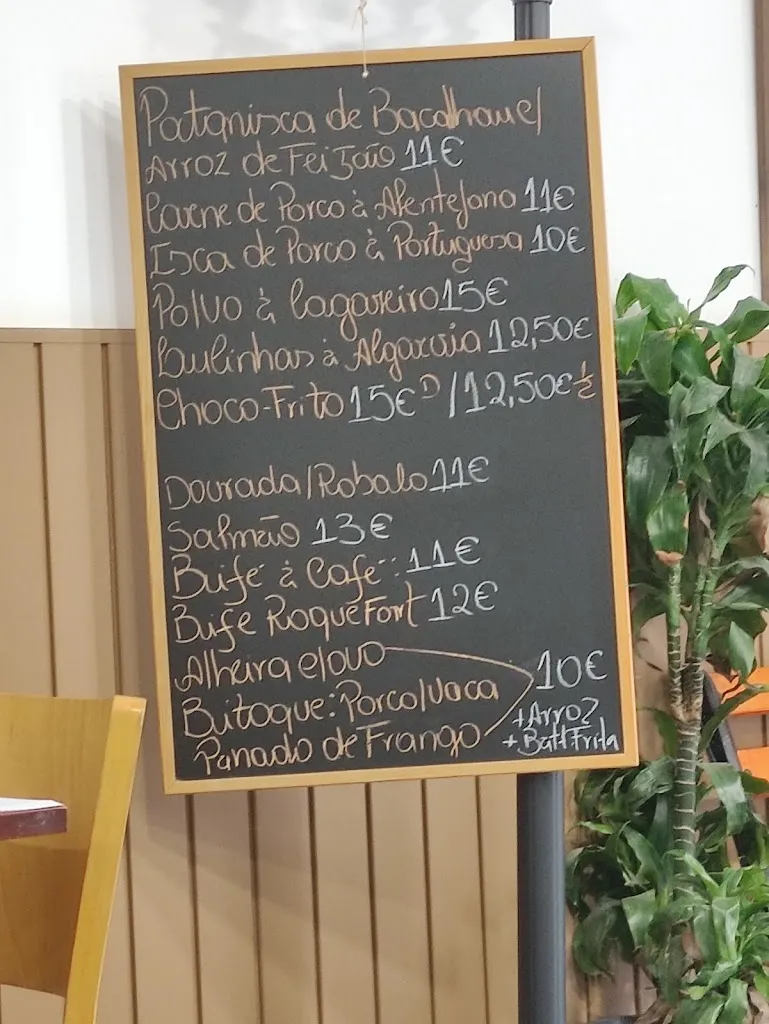 Patanisca de Bacalhau c/
Arroz de Feijão 11€
Carne de Porco à Alentejana 11€
Isca de Porco à Portuguesa 10€
Polvo à lagareiro 15€
Lulinhas à Algarvia 12,50€
Choco-Frito 15€ D / 12,50€ ½
Dourada/Robalo 11€
Salmão 13€
Bife à Café: 11€
Bife Roquefort 12€
Alheira c/ovo
Bitoque: Porco/vaca 10€
Panado de Frango
+Arroz
+Batt Frita